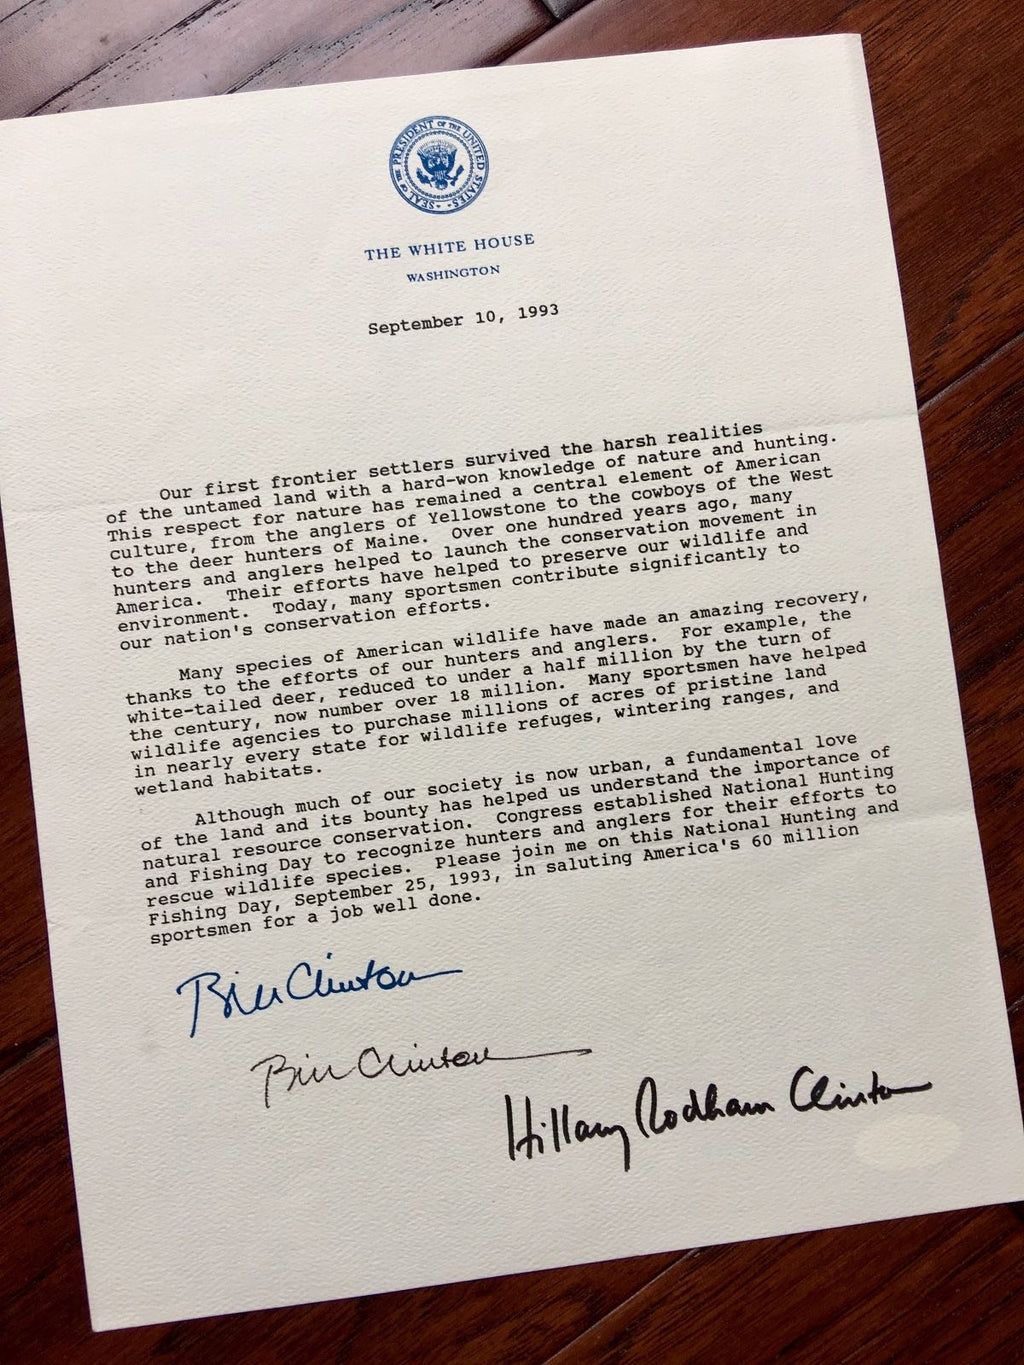 SEAL OF THE PRESIDENT OF THE UNITED STATES
THE WHITE HOUSE
WASHINGTON
September 10, 1993
Our first frontier settlers survived the harsh realities
of the untamed land with a hard-won knowledge of nature and hunting.
This respect for nature has remained a central element of American
culture, from the anglers of Yellowstone to the cowboys of the West
to the deer hunters of Maine. Over one hundred years ago, many
hunters and anglers helped to launch the conservation movement in
America. Their efforts have helped to preserve our wildlife and
environment. Today, many sportsmen contribute significantly to
our nation's conservation efforts.
Many species of American wildlife have made an amazing recovery,
thanks to the efforts of our hunters and anglers. For example, the
white-tailed deer, reduced to under a half million by the turn of
the century, now number over 18 million. Many sportsmen have helped
wildlife agencies to purchase millions of acres of pristine land
in nearly every state for wildlife refuges, wintering ranges, and
wetland habitats.
Although much of our society is now urban, a fundamental love
of the land and its bounty has helped us understand the importance of
natural resource conservation. Congress established National Hunting
and Fishing Day to recognize hunters and anglers for their efforts to
rescue wildlife species. Please join me on this National Hunting and
Fishing Day, September 25, 1993, in saluting America's 60 million
sportsmen for a job well done.
Bill Clinton
Bill Clinton
Hillary Rodham Clinton